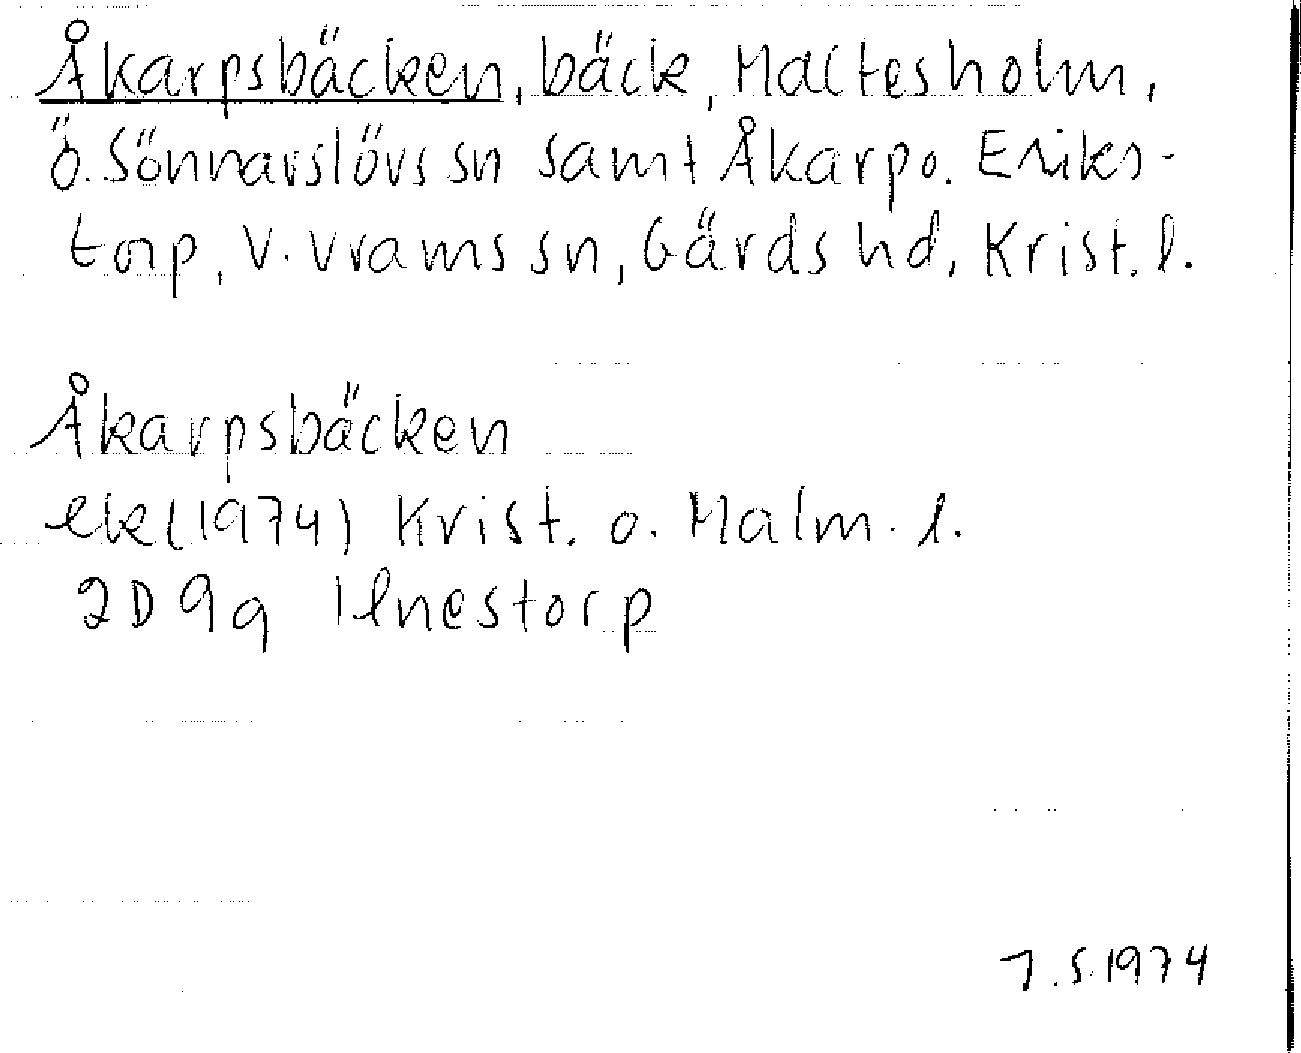 Åkarpsbäcken, bäck, Maltesholm,
Ö. Sönnarslövs sn samt Åkarp o. Eriks-
torp, V. Vrams sn, Gärds hd, Krist. l.
Åkarpsbäcken
ek (1974) Krist. o. Malm. l.
2D 9g Ilnestorp
J.S. 1974